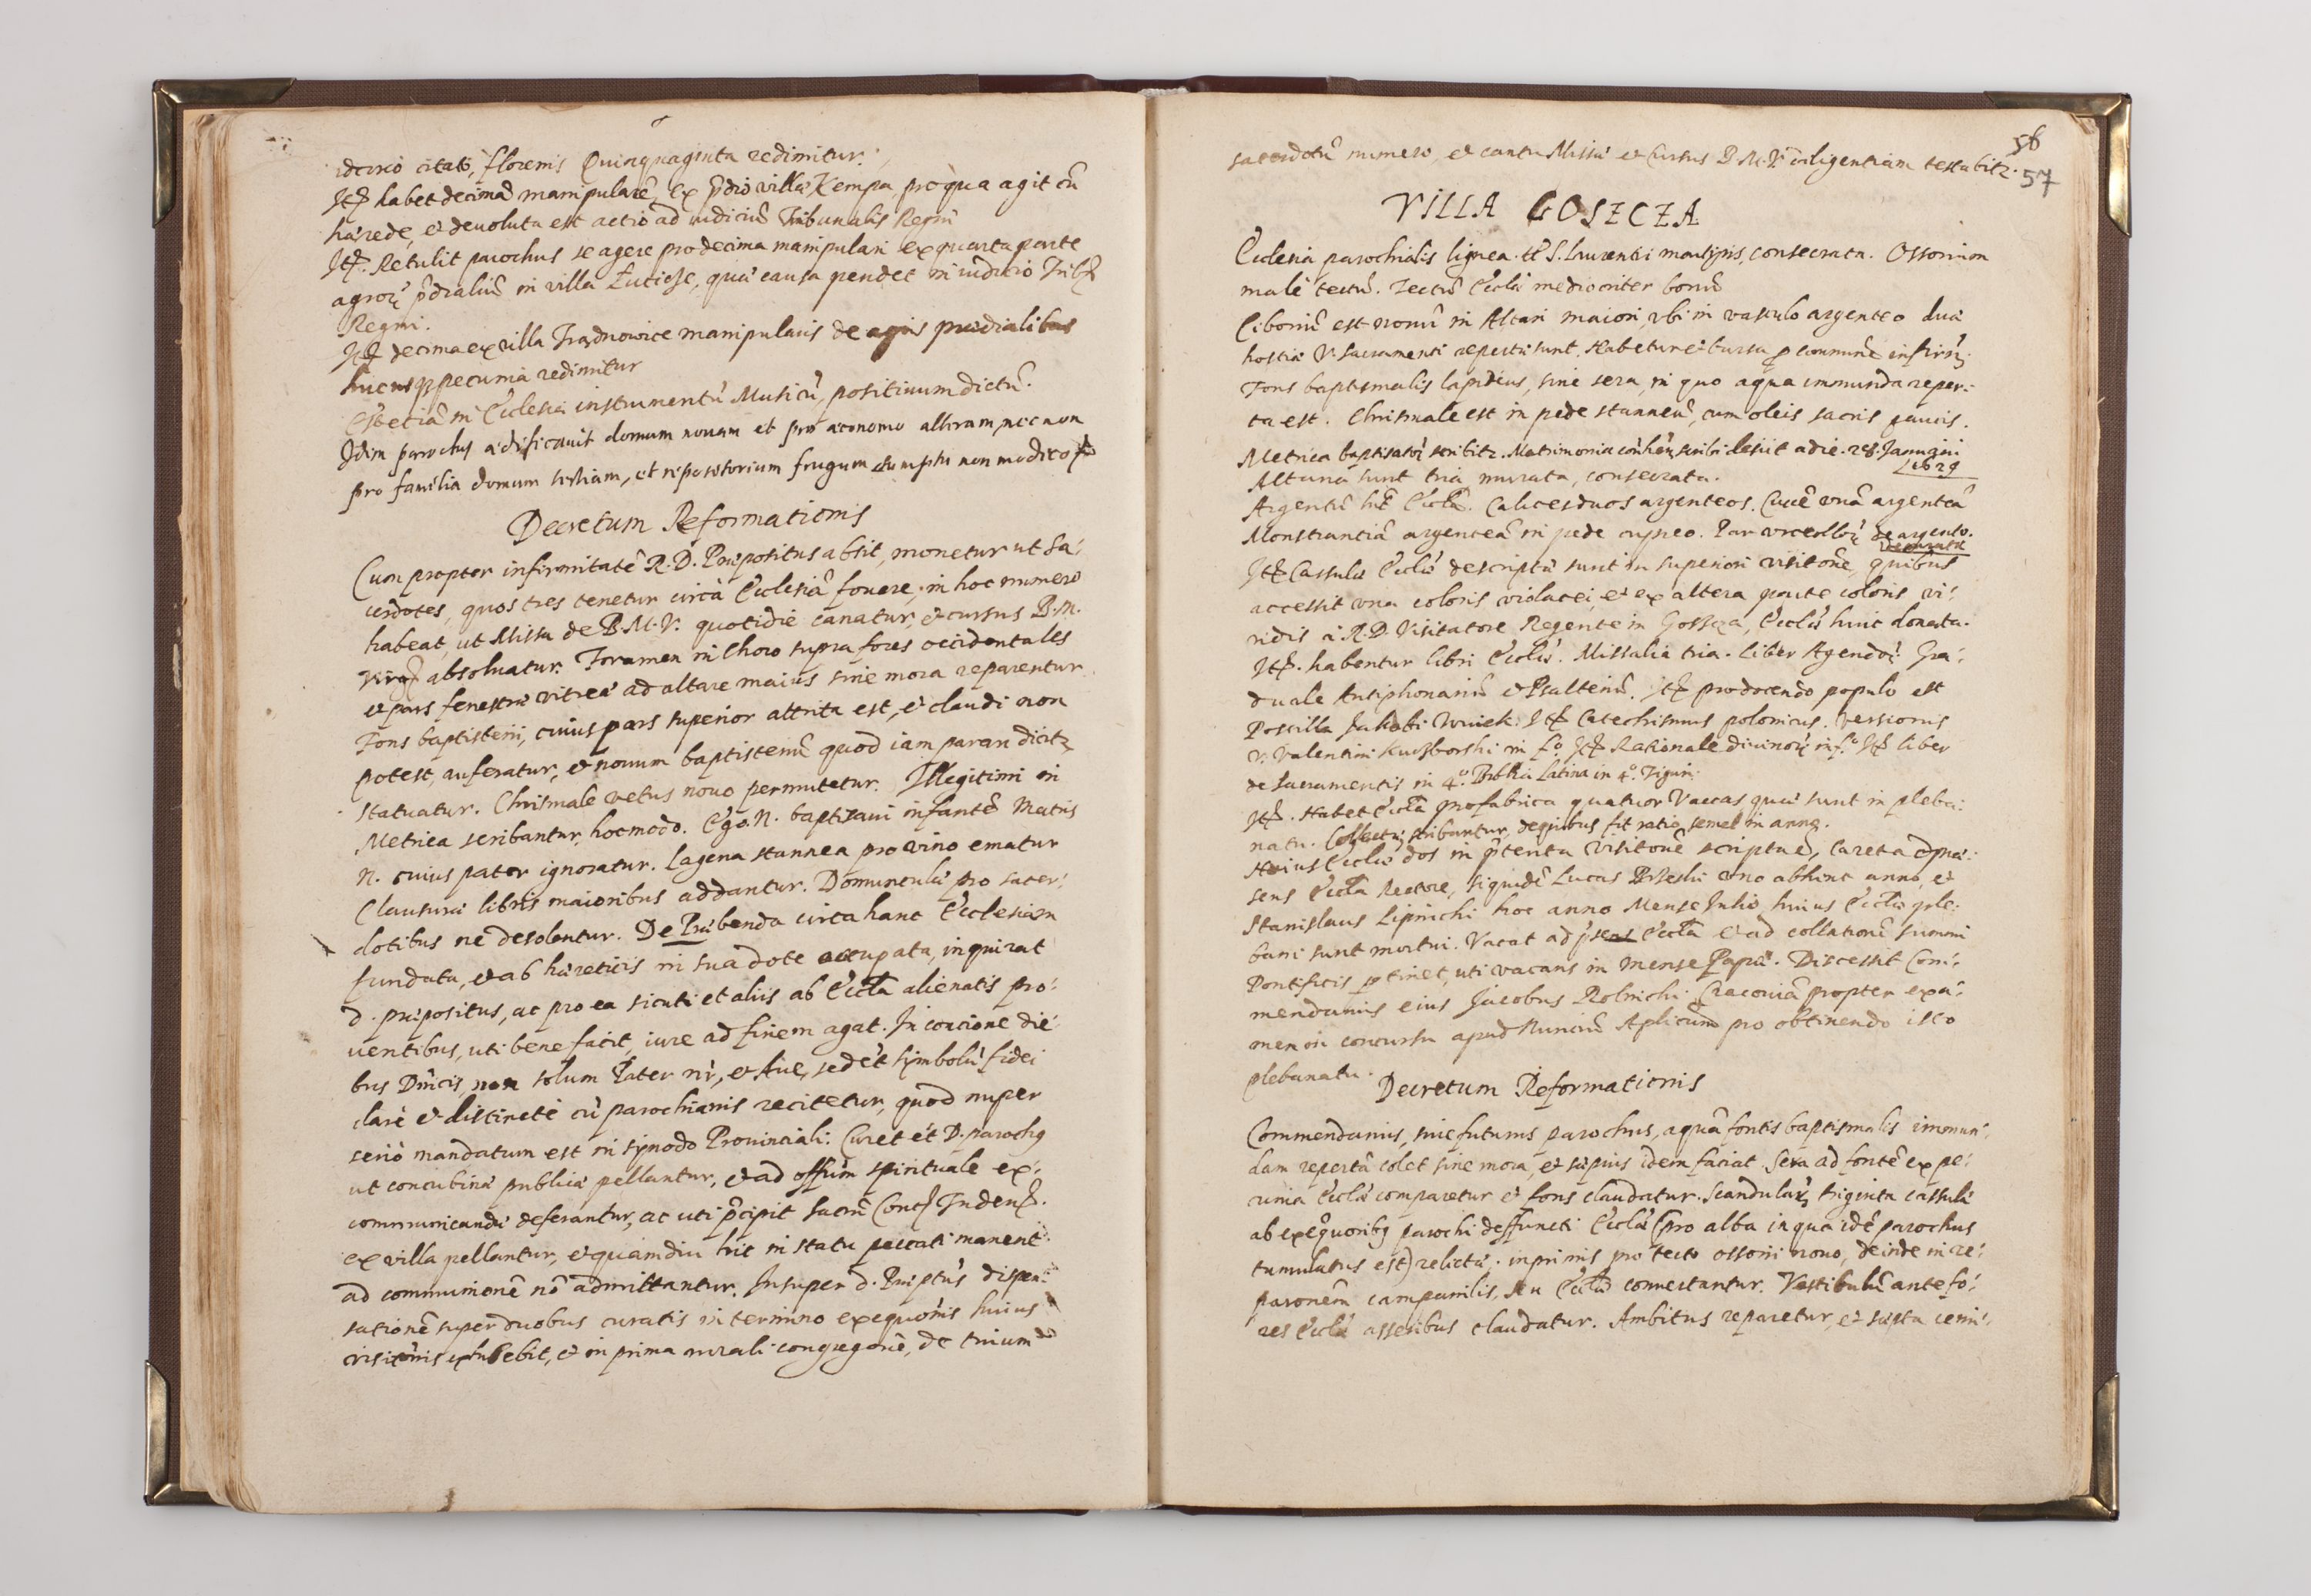 idcirco citati, florenis Quinquaginta redimitur.
Itẽ habet decimã manipularẽ, ex p̃dio villæ Kempa, pro qua agit cũ
hærede, et deuoluta est actio ad iudiciũ Tribunalis Regni
Itẽ. Retulit parochus se agere pro decima manipulari ex quarta parte
agrorũ p̃dialiũ in villa Luticze, quæ causa pendet in iudicio Trib
Regni.
Itẽ decima ex villa manipularis de agris prædialibus
hucusq̃ pecunia redimitur
Est etiã in Ecclesia instrumentũ Musicũ, positiuum dictũ.
Idem parochus ædificauit domum nouam et pro œconomo alteram, nec non
pro familia domum tertiam, et repositorium frugum sumptu non modico
Decretum Reformationis
Cum propter infirmitatẽ R. D. Præpositus absit, monetur ut sa-
cerdotes, quos tres tenetur circa Ecclesiã fouere, in hoc numero
habeat, ut Missa de B. M. V. quotidie canatur, et cursus B. M.
Virg absoluatur. Foramen in Choro supra fores occidentales
et pars fenestræ vitreæ ad altare maius sine mora reparentur
Fons baptisterii, cuius pars superior attrita est, et claudi non
potest, auferatur, et nouum baptisteriũ quod iam parari dicitr
statuatur. Chrismale vetus nouo permutetur. Illegitimi in
Metrica scribantur, hoc modo. Ego. N. baptizaui infantẽ Matris
N. cuius pater ignoratur. Lagena stannea pro vino ematur
Clausuræ libris maioribus addantur. Domunculæ pro sacer-
dotibus ne desolentur. De Præbenda circa hanc Ecclesiam
fundata, et ab hæreticis in sua dote occupata, inquirat
d. præpositus, ac pro ea sicuti et aliis ab Eccla alienatis pro-
uentibus, uti bene facit, iure ad finem agat. In concione die-
bus Dñicis, non solum Pater nr̃, et Aue, sed et symbolũ fidei
clarè et distinctè cũ parochianis recitetur, quod nuper
seriò mandatum est in synodo Prouinciali. Curet et D. parochus
ut concubinæ publicæ pellantur, et ad offm̃ spirituale ex-
communicandi deferantur, ac uti p̃cipit sacrũ Conc Triden.
ex villa pellantur, et quamdiu hic in statu peccati manent
ad communionẽ nõ admittantur. Insuper d. Præptũs dispen-
sationẽ super duobus curatis in termino exequõnis huius
visitõnis exhibebit, et in prima rurali congregõne, de trium
56
57
sacerdotũ numero, et cantu Missæ et Cursus B. M. V. diligentiam testabitr.
VILLA GOSZCZA
Ecclesia parochialis lignea. tt S. Laurentii martyris, consecrata. Ossorium
malè tectũ. Tectũ Ecclæ mediocriter bonũ
Ciboriũ est nouũ in Altari maiori, vbi in vasculo argenteo duæ
hostiæ V. Sacramenti repertæ sunt. Habetur et bursa p̱ communẽ infirm̃.
Fons baptismalis lapideus, sine sera, in quo aqua immunda reper-
ta est. Chrismale est in pede stanneũ, cum oleis sacris paucis.
Metrica baptisatorũ scribitr. Matrimonia scribi desiit a die. 28. Januarii
1629
Altaria sunt tria, murata, consecrata.
Argentũ hẽt Eccla. Calices duos argenteos. Crucẽ vnã argenteã
Monstrantiã argenteã in pede cupreo. Par vrceolorũ de argento.
deaurata
Itẽ Casulæ Ecclæ descriptæ sunt in superiori visitõne, quibus
accessit vna coloris violacei, et ex altera parte coloris vi-
ridis à R. D. Visitatore Regente in Goszcza, Ecclæ huic donata.
Itẽ. habentur libri Ecclæ. Missalia tria. Liber Agendorũ. Gra-
duale Antiphonariũ et Psalteriũ. Itẽ pro docendo populo est
Postilla Jakobi Wuiek. Itẽ Catechismus polonicus. versionis
V. Valentini Kuczborski in fo. Itẽ Rationale diuinorũ in fo. Itẽ liber
de Sacramentis in 4o. Biblia Latina in 4o. Tiguri.
Itẽ. Habet Eccla pro fabrica quatuor Vaccas quæ sunt in pleba-
natu. Collectæ scribuntur, de quibus fit ratio semel in anno.
Huius Ecclæ dos in p̃tenta visitõne scripta ẽ, Caret ad præ-
sens Eccla Rectore, siquidẽ Lucas Brzeski vno abhinc anno, et
Stanislaus Lipnicki hoc anno Mense Julio huius Ecclæ ple-
bani sunt mortui. Vacat ad p̃sens Eccla et ad collationẽ summi
Pontificis p̱tinet, uti vacans in mense Papæ. Discessit Com-
mendarius eius Jacobus Rolnichi Cracouiã propter exa-
men in concursu apud Nunciũ Aplicum pro obtinendo isto
plebanatu.
Decretum Reformationis
Commendarius, siue futurus parochus, aquã fontis baptismalis immun-
dam repertã colet sine mora, et sæpius idem faciat. Sera ad fontẽ ex pe-
cunia Ecclæ comparetur et fons claudatur. Scandularũ triginta cassulæ
ab exequtoribus parochi deffuncti Ecclæ (pro alba in qua idẽ parochus
tumulatus est) relictæ. inprimis pro tecto ossorii nouo, deinde in re-
parationẽm campanilis, seu Ecclæ conuertantur. Vestibulũ ante fo-
res Ecclæ asseribus claudatur. Ambitus reparetur, et septa cemi-